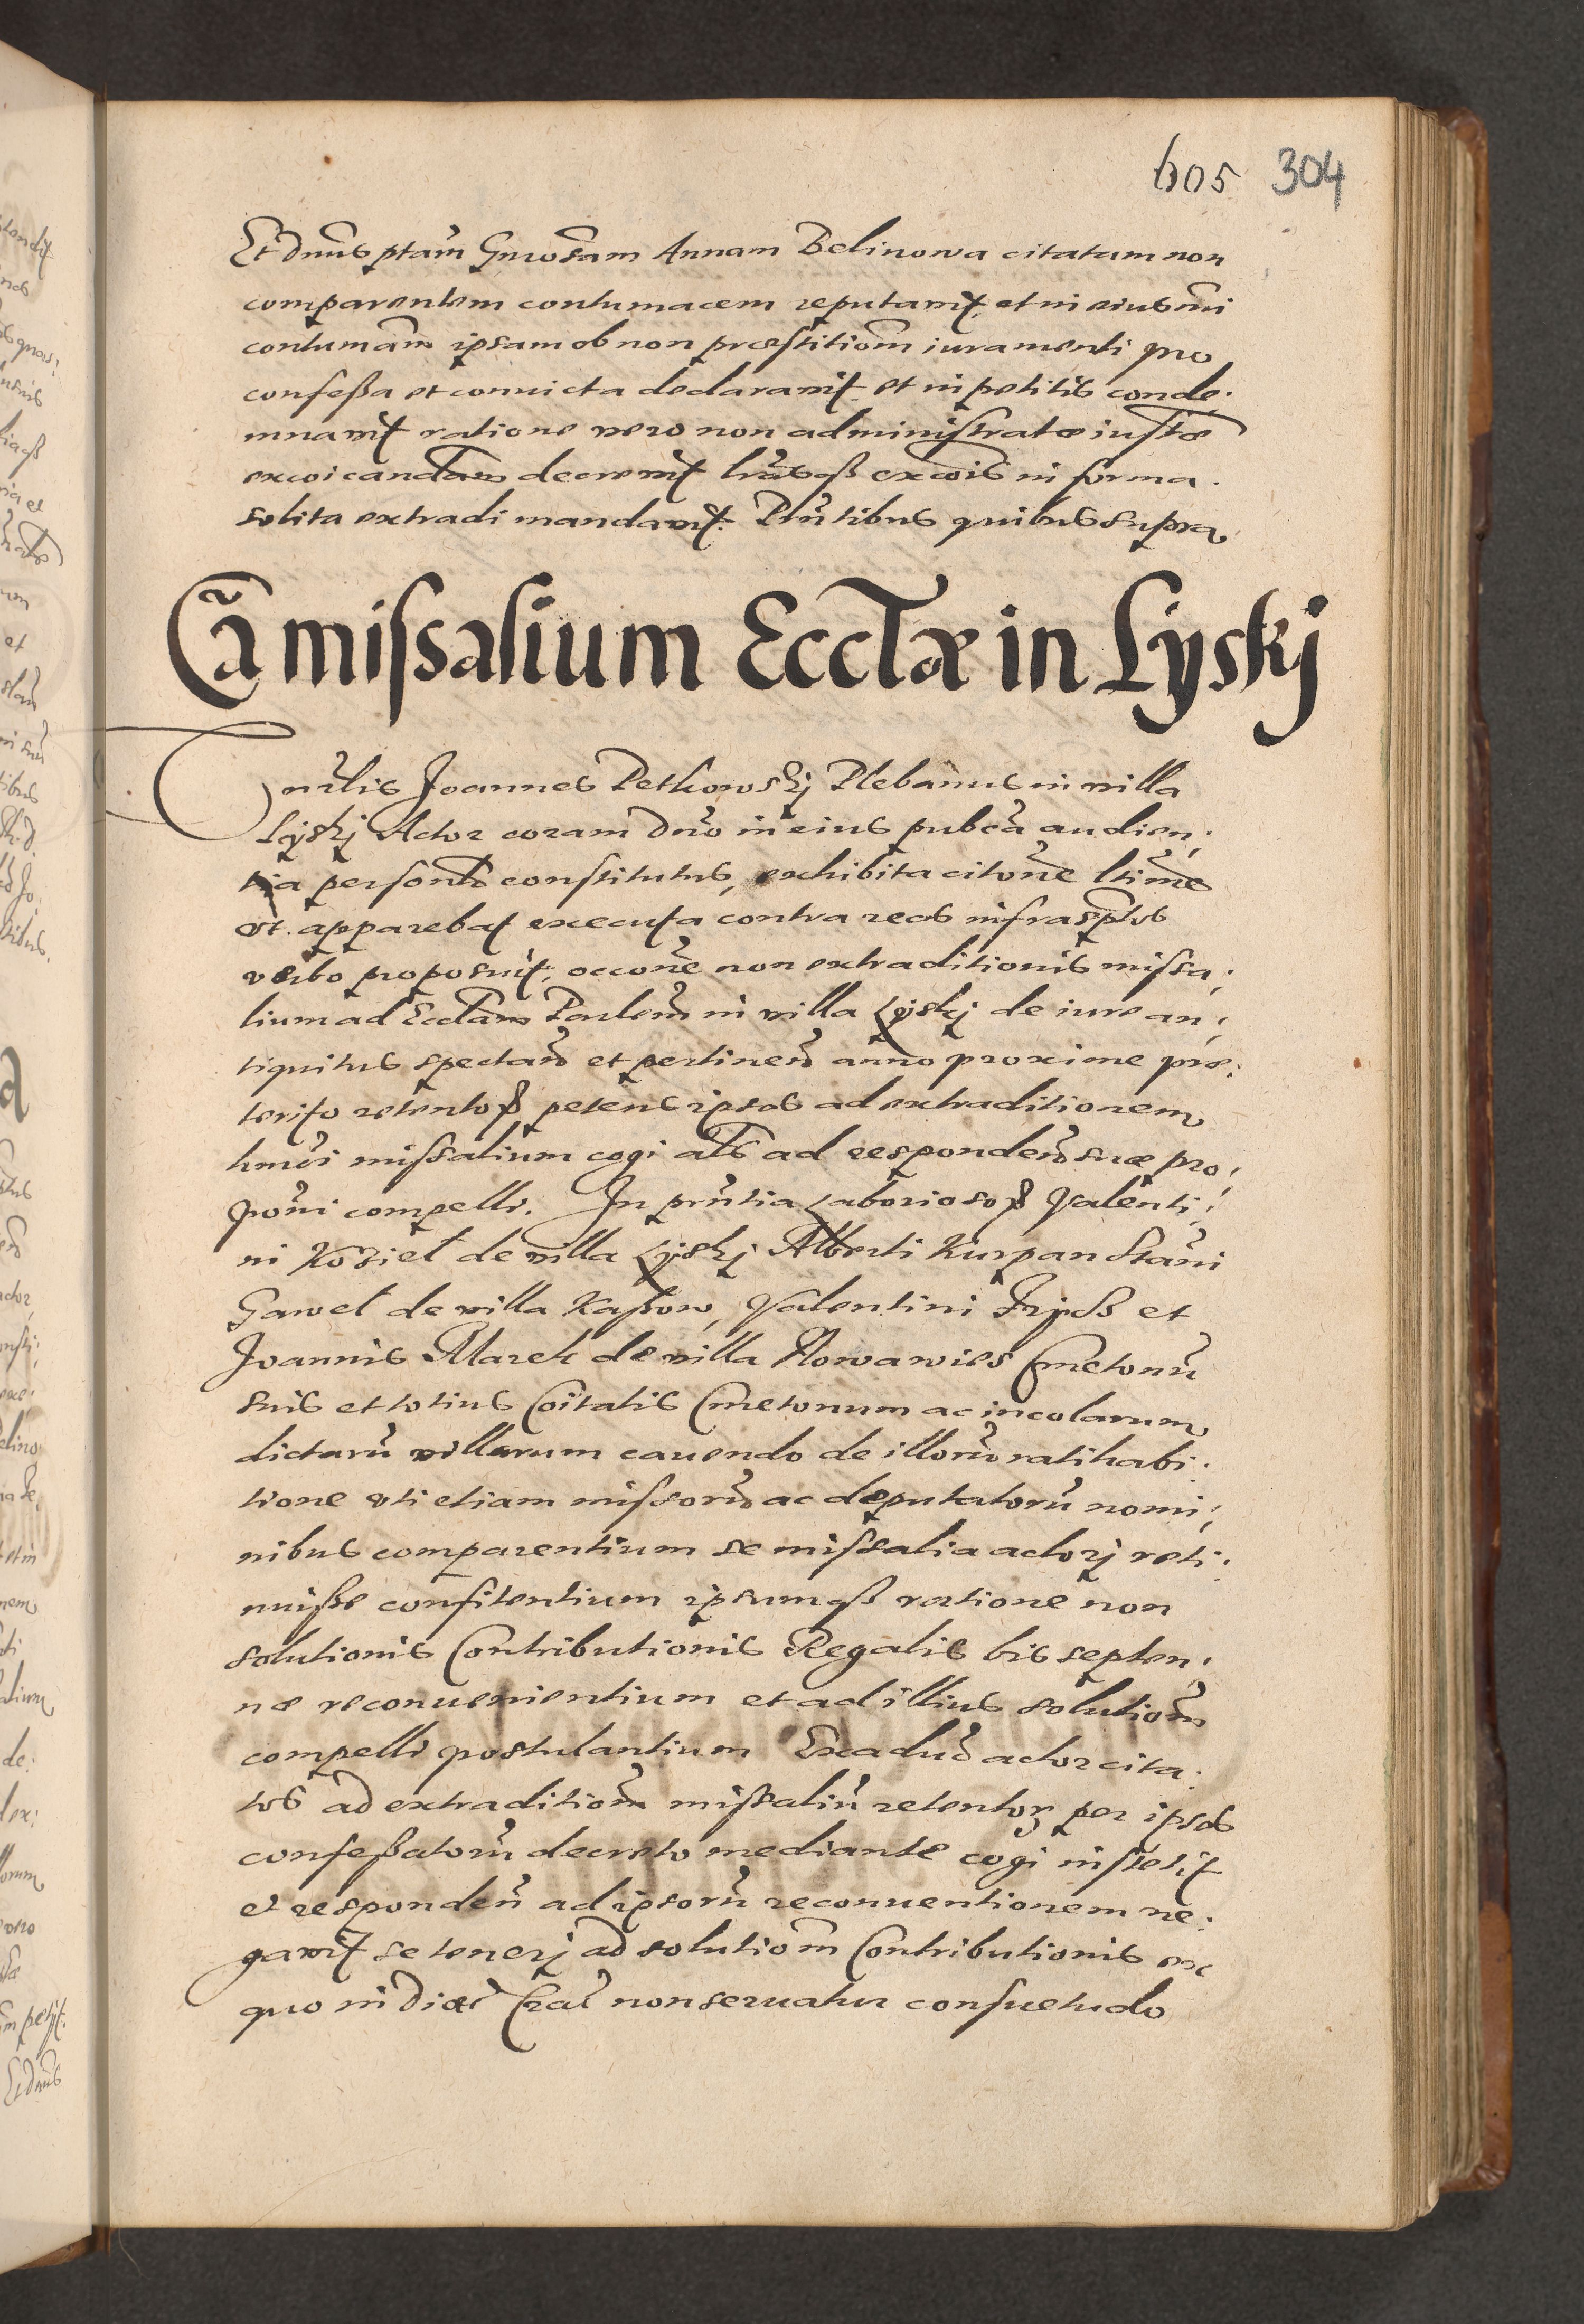 605 304
Et Dnus ptam Gnrosam Annam Belinowa citatam non
comparentem contumacem reputavit, et in eiusmi
contumam ipsam ob non præstitiom iuramenti pro
confessa et convicta declaravit et in petitis conde,
mnavit ratione vero non administratæ iustæ
excoicandam decrevit lrasq excois in forma
solita extradi mandavit. Pntibus quibus supra
Cā missalium Ecclæ in Lyskj
Joannes Petkowskj Plebanus in villa
Lyskj Actor coram Dno in eius pubca audien,
tia personlr constitutus, exhibita citone ltime
vt apparebat executa contra reos infrasptos
verbo proposuit, occone non extraditionis missa,
lium ad Ecclam Parlem in villa Lyskj de iure an,
tiquitus spectan et pertinen anno proxime præ,
terito retentor petens ipsos ad extraditionem
hmoi missalium cogi als ad responden suæ pro,
poni compelli. In pntia Laboriosor Valenti,
ni Kozieł de villa Lyskj Alberti Kurpan Stani
Gaweł de villa Kassow, Valentini Frycz et
Joannis Marek de villa Nowawies Cmetonu
suis et totius Coitatis Cmetonum ac incolarum
dictaru villarum cavendo de illoru ratihabi,
tione vti etiam missoru ac deputatoru nomi,
nibus comparentium se missalia actorj reti,
nuisse confitentium ipsumq ratione non
solutionis Contributionis Regalis bis septen,
næ reconuenientium et ad illius solutiom
compelli postulantium Ex aduo actor cita,
tos ad extraditiom missaliu retentor per ipsos
confessatoru decreto mediante cogi institit
et responden ad ipsoru reconuentionem ne,
gavit se tenerj ad solutiom Contributionis ex
quo in Diæc Crac non seruatur consuetudo